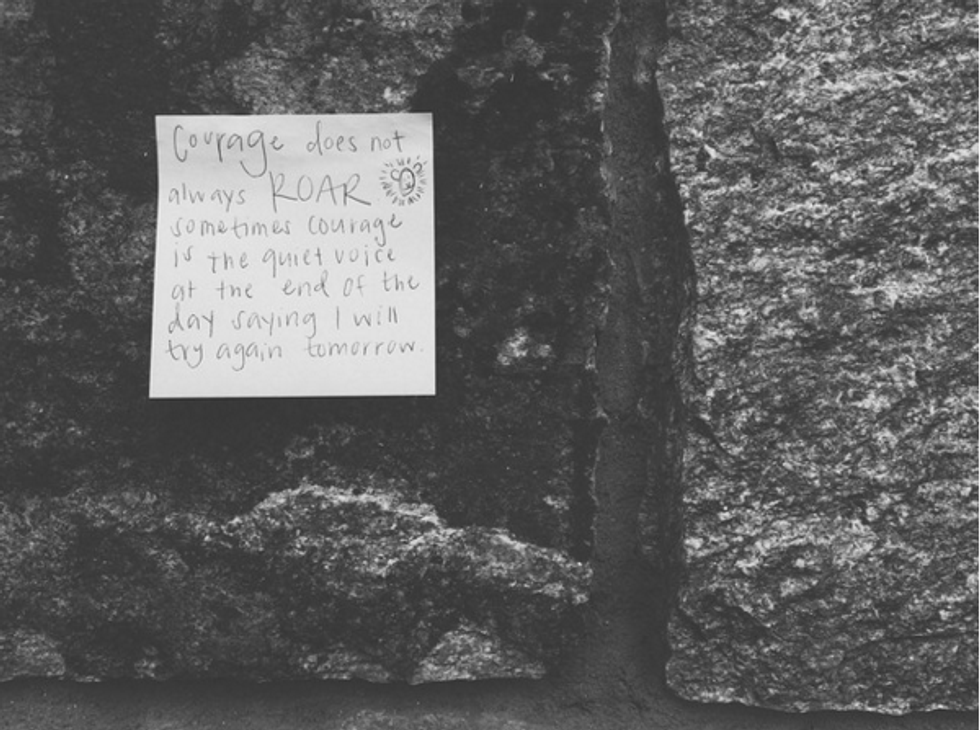 Courage does not
always ROAR
sometimes courage
is the quiet voice
at the end of the
day saying I will
try again tomorrow.